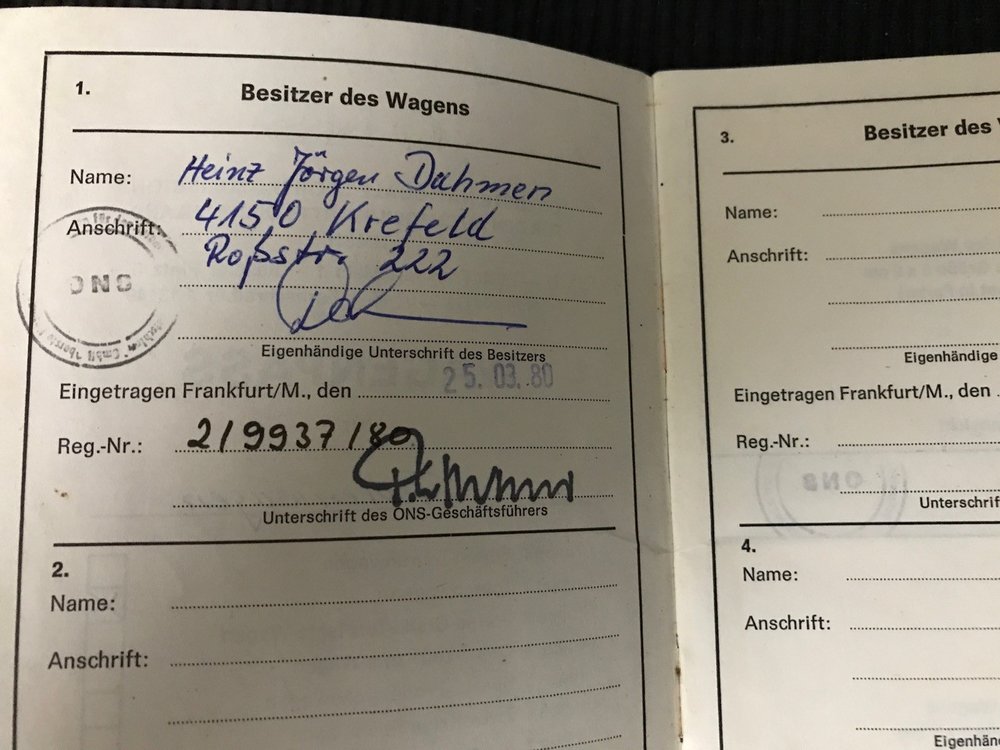 1.
Besitzer des Wagens
Name: Heinz Jörgen Dahmen
Anschrift: 4150 Krefeld
Roßstr. 222
Eigenhändige Unterschrift des Besitzers
Eingetragen Frankfurt/M., den 25.03.80
Reg.-Nr.: 2/9937/80
Unterschrift des ONS-Geschäftsführers
ONS
2.
Name:
Anschrift:
3.
Besitzer des
Name:
Anschrift:
Eigenhändige
Eingetragen Frankfurt/M., den
Reg.-Nr.:
ONS
4.
Name:
Anschrift: